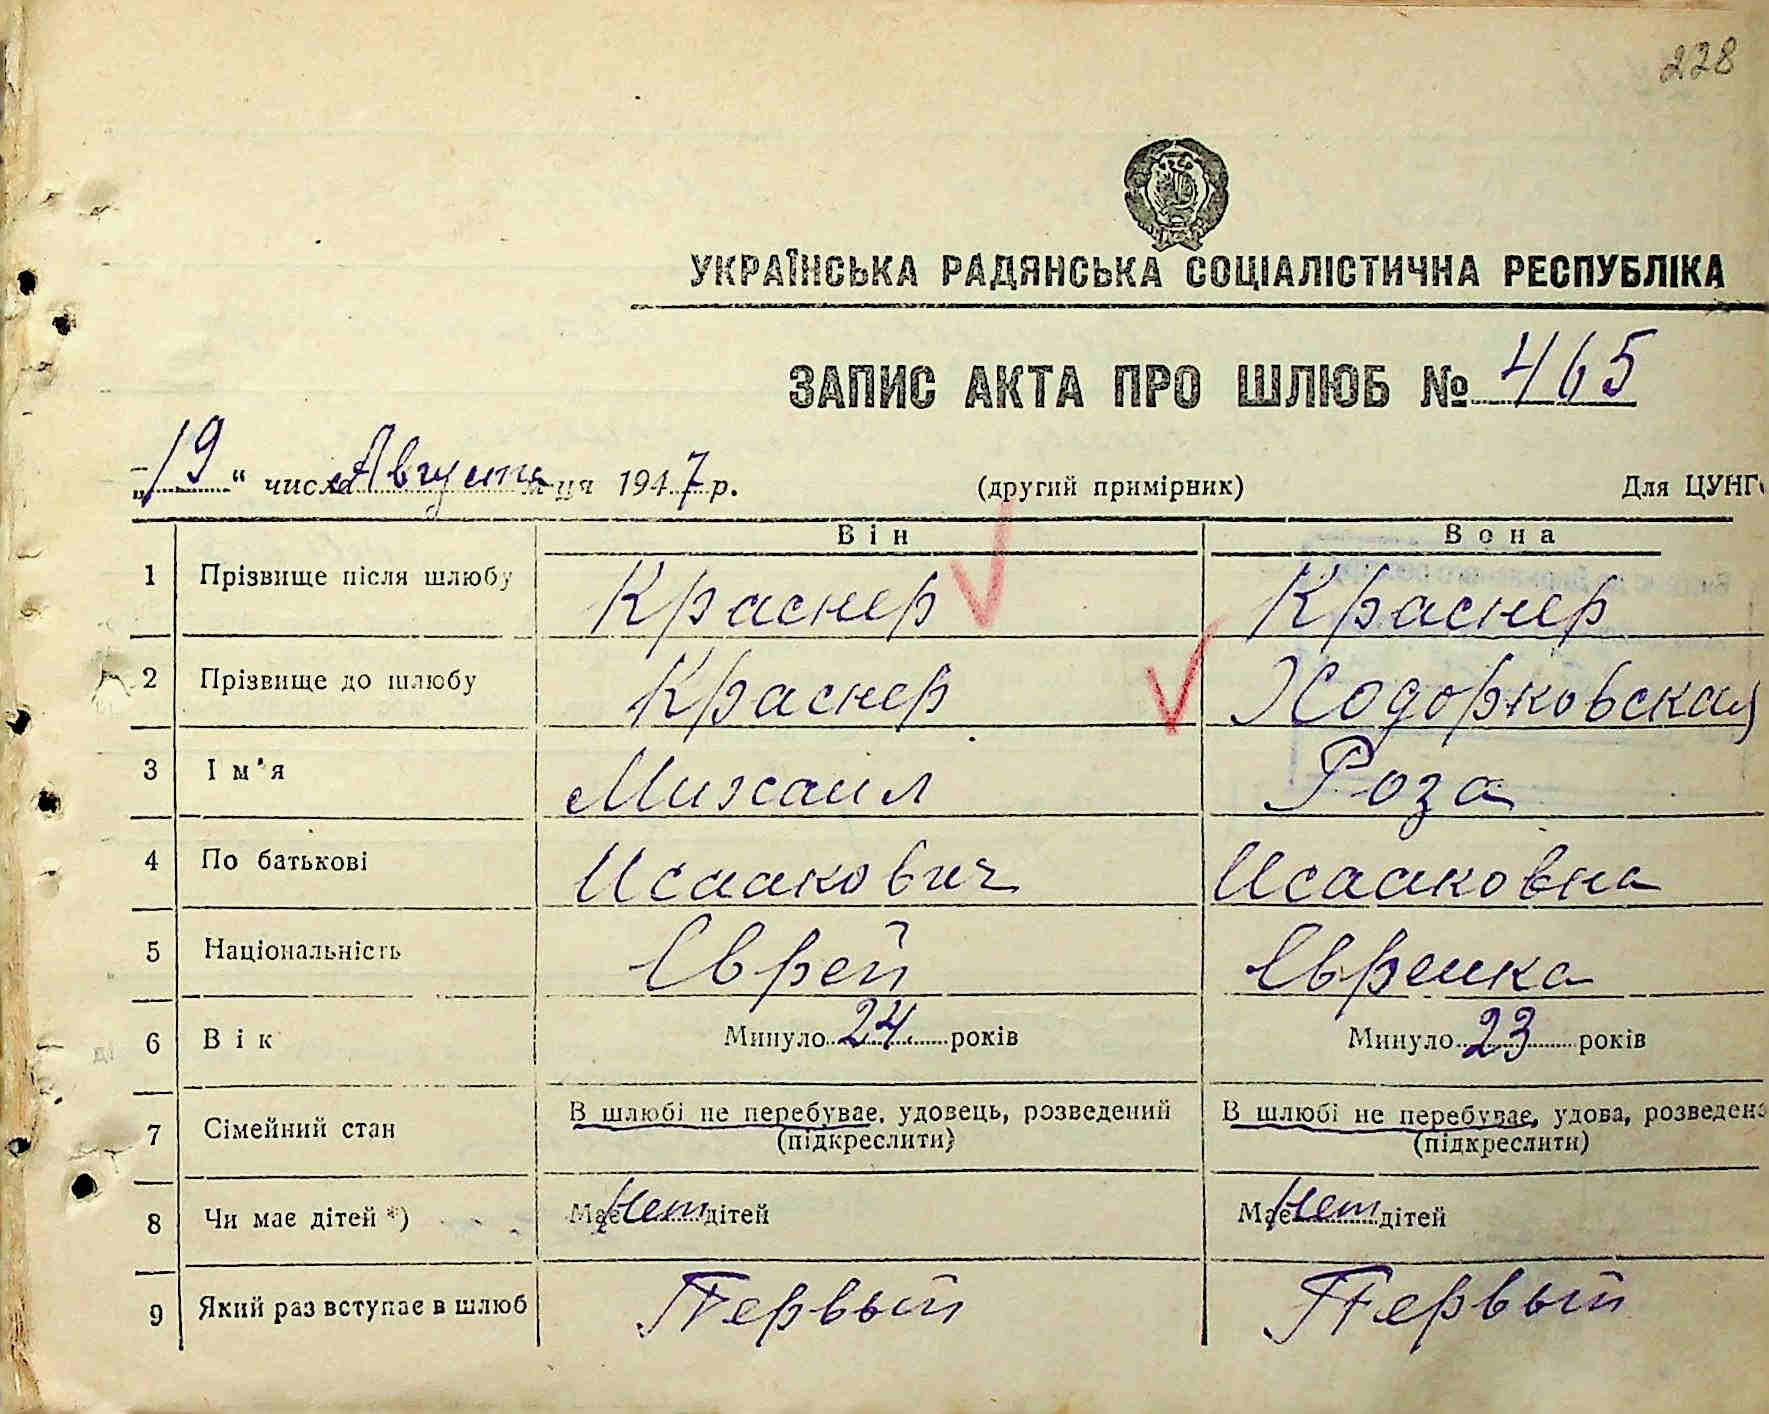 228
УКРАЇНСЬКА РАДЯНСЬКА СОЦІАЛІСТИЧНА РЕСПУБЛІКА
ЗАПИС АКТА ПРО ШЛЮБ № 465
„19“ числа Август м-ця 1947 р. (другий примірник) Для ЦУНГ
Він Вона
1 Прізвище після шлюбу Краснер Краснер
2 Прізвище до шлюбу Краснер Ходорковская
3 Ім'я Михаил Роза
4 По батькові Исаакович Исааковна
5 Національність Еврей Еврейка
6 Вік Минуло 24 років Минуло 23 років
7 Сімейний стан В шлюбі не перебуває, удовець, розведений В шлюбі не перебуває, удова, розведена
(підкреслити) (підкреслити)
8 Чи має дітей *) Має Нет дітей Має Нет дітей
9 Який раз вступає в шлюб Первый Первый